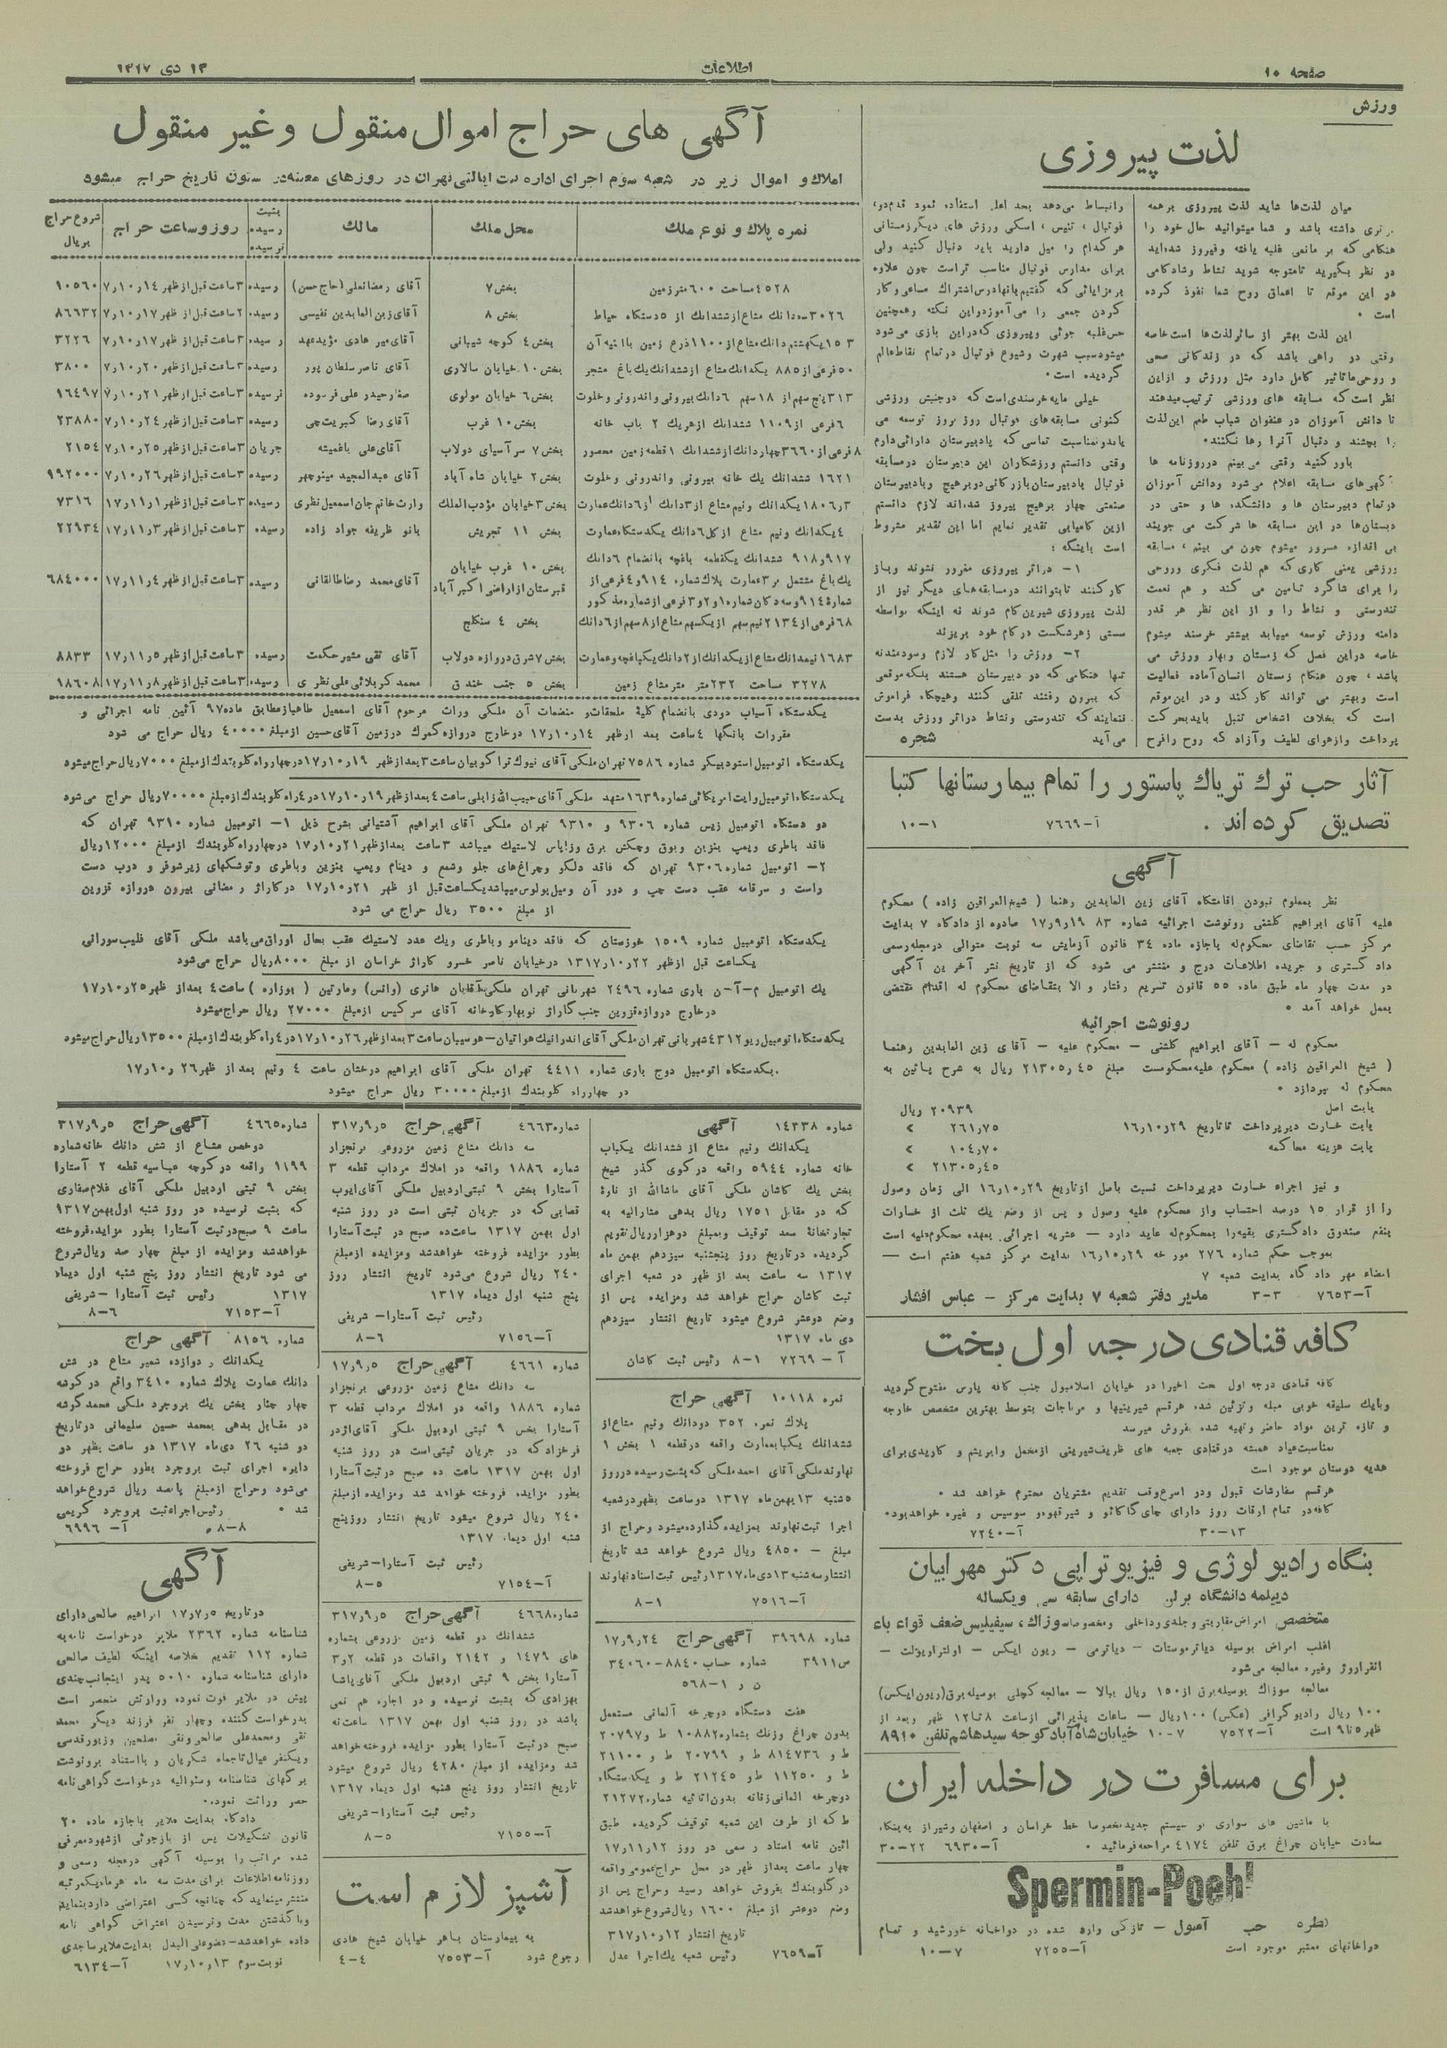 صفحه ۱۰
اطلاعات
۱۳ دی ۱۳۱۷
ورزش
لذت پیروزی
میان لذت‌ها شاید لذت پیروزی بر همه
برتری داشته باشد و شما میتوانید حال خود را
هنگامی که بر مانعی غلبه یافته وفیروز شده‌اید
در نظر بگیرید تا متوجه شوید نشاط وشادکامی
در این موقع تا اعماق روح شما نفوذ کرده
است ۰
این لذت بهتر از سائر لذت‌ها است خاصه
وقتی در راهی باشد که در زندگانی صحی
و روحی ما تاثیر کامل دارد مثل ورزش و ازاین
نظر است که مسابقه های ورزشی ترتیب میدهند
تا دانش آموزان در عنفوان شباب طعم این لذت
را بچشند و دنبال آنرا رها نکنند۰
باور کنید وقتی می بینم در روزنامه ها
آگهی‌های مسابقه اعلام می شود ودانش آموزان
در تمام دبیرستان ها و دانشکده ها و حتی در
دبستان‌ها در این مسابقه ها شرکت می جویند
بی اندازه مسرور میشوم چون می بینم ، مسابقه
ورزشی یعنی کاری که هم لذت فکری وروحی
را برای شاگرد تامین می کند و هم نعمت
تندرستی و نشاط را و از این نظر هر قدر
دامنه ورزش توسعه مییابد بیشتر خرسند میشوم
خاصه دراین فصل که زمستان وبهار ورزش می
باشد ، چون هنگام زمستان انسان آماده فعالیت
است وبهتر می تواند کار کند و در این موقع
است که بخلاف اشخاص تنبل باید بحرکت
پرداخت وازهوای لطیف وآزاد که روح رافرح
وانبساط می‌دهد بحد اعلی استفاده نمود قدم‌در،
فوتبال ، تنیس ، اسکی ورزش های دیگرزمستانی
هر کدام را میل دارید باید دنبال کنید ولی
برای مدارس فوتبال مناسب تر است چون علاوه
بر مزایائی که گفتیم بانها درس اشتراک مساعی وکار
کردن جمعی را می‌آموزد واین نکته و همچنین
حس غلبه جوئی وپیروزی که دراین بازی می‌شود
میشود سبب شهرت وشیوع فوتبال درتمام نقاط عالم
گردیده است۰
خیلی مایه خرسندی است که درجنبش ورزشی
کنونی مسابقه‌های فوتبال روز بروز توسعه می
یابد وبمناسبت تماسی که با دبیرستان دارائی دارم
وقتی دانستم ورزشکاران این دبیرستان درمسابقه
فوتبال با دبیرستان بازرگانی دو بر هیچ وبادبیرستان
صنعتی چهار بر هیچ پیروز شده‌اند لازم دانستم
ازین کامیابی تقدیر نمایم اما این تقدیر مشروط
است باینکه :
۱- دراثر پیروزی مغرور نشوند وباز
کار کنند تا بتوانند درمسابقه‌های دیگر نیز از
لذت پیروزی شیرین کام شوند نه اینکه بواسطه
سستی زهر شکست درکام خود بریزند
۲- ورزش را مثل کار لازم وسودمند نه
تنها هنگامی که در دبیرستان هستند بلکه موقعی
که بیرون رفتند تلقی کنند وهیچگاه فراموش
ننمایند که تندرستی ونشاط دراثر ورزش بدست
می‌آید
شجره
آثار حب ترك تریاك پاستور را تمام بیمارستانها کتبا
تصدیق کرده‌اند .
آ-۷۶۶۹ ۱-۱۰
آگهی
نظر بمعلوم نبودن اقامتگاه آقای زین العابدین رهنما ( شیخ العراقین زاده ) محکوم
علیه آقای ابراهیم گلشنی رونوشت اجرائیه شماره ۸۳ ۱۷ر۹ر۱۹ صادره از دادگاه ۷ بدایت
مرکز حسب تقاضای محکوم‌له باجازه ماده ۳۴ قانون آزمایش سه نوبت متوالی درمجله رسمی
داد گستری و جریده اطلاعات درج و منتشر می شود که از تاریخ نشر آخرین آگهی
در مدت چهار ماه طبق ماده ۵۵ قانون تسریع رفتار و الا بتقاضای محکوم له اقدام مقتضی
بعمل خواهد آمد ۰
رونوشت اجرائیه
محکوم له — آقای ابراهیم گلشنی — محکوم علیه — آقای زین العابدین رهنما
( شیخ العراقین زاده ) محکوم علیه محکومست مبلغ ۲۱۳۰۵ر۴۵ ریال به شرح پائین به
محکوم له بپردازد ۰
بابت اصل ۲۰۹۳۹ ریال
بابت خسارت دیرپرداخت تا تاریخ ۱۶ر۱۰ر۲۹ ۲۶۱ر۷۵ »
بابت هزینه محاکمه ۱۰۴ر۷۰ »
۲۱۳۰۵ر۴۵ »
و نیز اجراء خسارت دیرپرداخت نسبت باصل از تاریخ ۱۶ر۱۰ر۲۹ الی زمان وصول
را از قرار ۱۵ درصد احتساب واز محکوم علیه وصول و پس از وضع یك ثلث از خسارات
بنفع صندوق دادگستری بقیه را بمحکوم‌له عاید دارد — عشریه اجرائی بعهده محکوم‌علیه است
بموجب حکم شماره ۲۷۶ مورخه ۱۶ر۱۰ر۲۹ بدایت مرکز شعبه هفتم است —
امضاء مهر دادگاه بدایت شعبه ۷
آ-۷۶۵۳ ۳-۳ مدیر دفتر شعبه ۷ بدایت مرکز — عباس افشار
کافه قنادی درجه اول بخت
کافه قنادی درجه اول بخت اخیرا در خیابان اسلامبول جنب کافه پارس مفتوح گردید
وبایك سلیقه خوبی مبله وتزئین شده هرقسم شیرینیها و مرباجات بتوسط بهترین متخصص خارجه
و تازه ترین مواد حاضر وتهیه شده بفروش میرسد
بمناسبت عیاد همیشه درقنادی جعبه های ظریف شیرینی ازمخمل وابریشم و کاربدی برای
هدیه دوستان موجود است
هرقسم سفارشات قبول ودر اسرع وقت تقدیم مشتریان محترم خواهد شد ۰
کافه در تمام اوقات روز دارای چای کاکائو و شیر قهوه و سوسیس و غیره خواهد بود۰
۱۳-۳۰ آ-۷۲۴۰
بنگاه رادیو لوژی و فیزیوتراپی دکتر مهرابیان
دیپلمه دانشگاه برلن دارای سابقه سی ویکساله
متخصص امراض مقاربتی و جلدی و داخلی و مخصوصا سوزاك ، سیفیلیس ضعف قواء باء
اغلب امراض بوسیله دیاترموستات — دیاترمی — ریون ایکس — اولترا ویولت —
انفراروژ وغیره معالجه می‌شود
معالجه سوزاك بوسیله برق از ۱۵۰ ریال ببالا — معالجه کچلی بوسیله برق (ریون ایکس)
۱۰۰ ریال رادیوگرافی (عکس) ۱۰۰ ریال — ساعات پذیرائی از ساعت ۸ تا ۱۲ ظهر و بعد از
ظهر ۵ تا ۹ است آ-۷۵۲۲ ۷-۱۰ خیابان شاه آباد کوچه سیدهاشم تلفن ۸۹۱۰
برای مسافرت در داخله ایران
با ماشین های سواری نو سیستم جدید مخصوصا خط خراسان و اصفهان وشیراز به بنگاه
سعادت خیابان چراغ برق تلفن ۴۱۷۴ مراجعه فرمائید ۰ آ-۶۹۳۰ ۲۲-۳۰
Spermin-Poehl
قطره حب آمپول — تازگی وارد شده در دواخانه خورشید و تمام
دواخانهای معتبر موجود است آ-۷۲۵۵ ۷-۱۰
آگهی های حراج اموال منقول وغیر منقول
املاك و اموال زیر در شعبه سوم اجرای اداره ثبت ایالتی تهران در روزهای معینه در ستون تاریخ حراج میشود
نمره پلاك و نوع ملك | محل ملك | مالك | بثبت رسیده نرسیده | روز و ساعت حراج | شروع حراج بریال
۴۵۲۸ مساحت ۶۰۰ متر زمین | بخش ۷ | آقای رمضانعلی (حاج حسن) | رسیده | ۳ ساعت قبل از ظهر ۱۴ر۱۰ر۷ | ۱۰۵۶۰
۳۰۲۶ سه دانك مشاع از ششدانك از ۵ دستگاه حیاط | بخش ۸ | آقای زین العابدین نفیسی | رسیده | ۲ ساعت قبل از ظهر ۱۷ر۱۰ر۷ | ۸۶۶۳۲
۱۵۳ یکهشتم دانك مشاع از ۱۱۰۰ ذرع زمین با ابنیه آن | بخش ۴ کوچه شیبانی | آقای میر هادی مؤیدعهد | رسیده | ۳ ساعت قبل از ظهر ۱۷ر۱۰ر۷ | ۳۲۲۶
۵۰ فرعی از ۸۸۵ یکدانك مشاع از ششدانك یك باغ مشجر | بخش ۱۰ خیابان سالاری | آقای ناصر سلطان پور | رسیده | ۳ ساعت قبل از ظهر ۲۰ر۱۰ر۷ | ۳۸۰۰
۳۱۳ پنج سهم از ۱۸ سهم ۶ دانك بیرونی و اندرونی و خلوت | بخش ۶ خیابان مولوی | صفار حیدر علی فرسوده | نرسیده | ۳ ساعت قبل از ظهر ۲۱ر۱۰ر۷ | ۱۶۴۹۷
۶ فرعی از ۱۱۰۹ ششدانك از هریك ۲ باب خانه | بخش ۱۰ غرب | آقای رضا کبریت‌چی | رسیده | ۳ ساعت قبل از ظهر ۲۴ر۱۰ر۷ | ۲۳۸۸۰
۸ فرعی از ۳۶۶۰ چهاردانك از ششدانك ۱ قطعه زمین محصور | بخش ۷ سر آسیای دولاب | آقای علی باغمیشه | جریان | ۳ ساعت قبل از ظهر ۲۵ر۱۰ر۷ | ۲۱۵۴
۱۶۲۱ ششدانك یك خانه بیرونی واندرونی وخلوت | بخش ۲ خیابان شاه آباد | آقای عبدالمجید منوچهر | رسیده | ۳ ساعت قبل از ظهر ۲۶ر۱۰ر۷ | ۹۹۲۰۰۰
۳ر۱۸۰۶ یکدانك ونیم مشاع از ۳ دانك از ۶ دانك عمارت | بخش ۳ خیابان مؤدب الملك | وراث خانم جان اسمعیل نظری | رسیده | ۳ ساعت قبل از ظهر ۱ر۱۱ر۱۷ | ۷۳۱۶
۴ یکدانك ونیم مشاع از کل ۶ دانك یکدستگاه عمارت | بخش ۱۱ تجریش | بانو ظریفه جواد زاده | رسیده | ۳ ساعت قبل از ظهر ۳ر۱۱ر۱۷ | ۲۲۹۳۴
۹۱۷و۹۱۸ ششدانك یکقطعه باغچه بانضمام ۶ دانك
یك باغ مشتمل بر ۳ عمارت پلاك شماره ۹۱۴ و ۴ فرعی از
شماره ۹۱۴ و سه دکان شماره ۱و۲و۳ فرعی از شماره مذکور | بخش ۱۰ غرب خیابان قبرستان از اراضی اکبرآباد | آقای محمد رضا طالقانی | رسیده | ۳ ساعت قبل از ظهر ۴ر۱۱ر۱۷ | ۶۸۴۰۰۰
۶۸ فرعی از ۲۱۳۴ نیم سهم از یکسهم مشاع از ۸ سهم از ۶ دانك | بخش ۴ سنگلج
۱۶۸۳ نیمدانك مشاع از یکدانك از ۲ دانك یکباغچه وعمارت | بخش ۷ شرق دروازه دولاب | آقای تقی مشیر حکمت | رسیده | ۳ ساعت قبل از ظهر ۵ر۱۱ر۱۷ | ۸۸۳۳
۳۲۷۸ مساحت ۲۳۲ متر متر مشاع زمین | بخش ۵ جنب خندق | محمد کربلائی علی نظری | رسیده | ۳ ساعت قبل از ظهر ۸ر۱۱ر۱۷ | ۱۸۶۰۸
یکدستگاه آسیاب دودی بانضمام کلیه ملحقات و منضمات آن ملکی وراث مرحوم آقای اسمعیل طاهباز مطابق ماده ۹۷ آئین نامه اجرائی و
مقررات بانگها ۴ ساعت بعد از ظهر ۱۴ر۱۰ر۱۷ در خارج دروازه گمرك درزمین آقای حسین از مبلغ ۴۰۰۰۰ ریال حراج می شود
یکدستگاه اتومبیل استودبیکر شماره ۷۵۸۶ تهران ملکی آقای نیوك تراکوپیان ساعت ۳ بعد از ظهر ۱۹ر۱۰ر۱۷ در چهارراه گلوبندك از مبلغ ۷۰۰۰ ریال حراج میشود
یکدستگاه اتومبیل وایت امریکائی شماره ۱۶۳۹ مشهد ملکی آقای حبیب الله زابلی ساعت ۴ بعد از ظهر ۱۹ر۱۰ر۱۷ در ۴ راه گلوبندك از مبلغ ۷۰۰۰۰ ریال حراج می‌شود
دو دستگاه اتومبیل زیس شماره ۹۳۰۶ و ۹۳۱۰ تهران ملکی آقای ابراهیم آشتیانی بشرح ذیل ۱- اتومبیل شماره ۹۳۱۰ تهران که
فاقد باطری وپمپ بنزین وبوق وچکش برق وزاپاس لاستیك میباشد ۳ ساعت بعد از ظهر ۲۱ر۱۰ر۱۷ در چهارراه گلوبندك از مبلغ ۱۲۰۰۰ ریال
۲- اتومبیل شماره ۹۳۰۶ تهران که فاقد دلکو وچراغ‌های جلو وشمع و دینام وپمپ بنزین وباطری وتوشکهای زیرشوفر و درب دست
راست و سرقامه عقب دست چپ و دور آن ومیل پولوس میباشد یکساعت قبل از ظهر ۲۱ر۱۰ر۱۷ در گاراژ رمضانی بیرون دروازه قزوین
از مبلغ ۳۵۰۰ ریال حراج می شود
یکدستگاه اتومبیل شماره ۱۵۰۹ خوزستان که فاقد دینامو وباطری ویك عدد لاستیك عقب بحال اوراق می‌باشد ملکی آقای فلیب سورانی
یکساعت قبل از ظهر ۲۲ر۱۰ر۱۳۱۷ درخیابان ناصر خسرو گاراژ خراسان از مبلغ ۸۰۰۰ ریال حراج می‌شود
یك اتومبیل م-آ-ن باری شماره ۲۴۹۶ شهربانی تهران ملکی آقایان هانری (وانس) ومارتین (بوزاره) ساعت ۴ بعد از ظهر ۲۵ر۱۰ر۱۷
در خارج دروازه قزوین جنب گاراژ نوبهار کارخانه آقای سرکیس از مبلغ ۲۷۰۰۰ ریال حراج میشود
یکدستگاه اتومبیل ریو ۴۳۱۲ شهربانی تهران ملکی آقای اندرانیك هواتیان-هوسپیان ساعت ۳ بعد از ظهر ۲۶ر۱۰ر۱۷ در ۴ راه گلوبندك از مبلغ ۱۳۵۰۰ ریال حراج میشود
یکدستگاه اتومبیل دوج باری شماره ۴۴۱۱ تهران ملکی آقای ابراهیم درخشان ساعت ۴ ونیم بعد از ظهر ۲۶ر۱۰ر۱۷
در چهارراه گلوبندك از مبلغ ۳۰۰۰۰ ریال حراج میشود
شماره ۱۴۳۳۸ آگهی
یکدانك ونیم مشاع از ششدانك یکباب
خانه شماره ۵۹۴۴ واقعه درکوی گذر شیخ
بخش یك کاشان ملکی آقای ماشاالله از نارۀ
که در مقابل ۱۷۵۱ ریال بدهی مشارالیه به
تجارتخانه سعد توقیف وبمبلغ دوهزار ریال تقویم
گردیده درتاریخ روز پنجشنبه سیزدهم بهمن ماه
۱۳۱۷ سه ساعت بعد از ظهر در شعبه اجرای
ثبت کاشان حراج خواهد شد ومزایده پس از
وضع دوعشر شروع میشود تاریخ انتشار سیزدهم
دی ماه ۱۳۱۷
آ-۷۲۶۹ ۱-۸ رئیس ثبت کاشان
نمره ۱۰۱۱۸ آگهی حراج
پلاك نمره ۳۵۲ دودانك ونیم مشاع از
ششدانك یکبابعمارت واقعه درقطعه ۱ بخش ۱
نهاوند ملکی آقای احمد ملکی که بثبت رسیده درروز
۵ شنبه ۱۳ بهمن ماه ۱۳۱۷ دوساعت بظهر درشعبه
اجرا ثبت نهاوند بمزایده گذارده میشود وحراج از
مبلغ — ۴۸۵۰ ریال شروع خواهد شد تاریخ
انتشار سه شنبه ۱۳ دی ماه ۱۳۱۷ رئیس ثبت اسناد نهاوند
آ-۷۵۱۶ ۱-۸
شماره ۳۹۶۹۸ آگهی حراج ۱۷ر۹ر۲۴
ص ۳۹۱۱ شماره حساب ۸۸۴۰-۳۴۰۶۰
ن ر ۱-۵۶۸
هفت دستگاه دوچرخه آلمانی مستعمل
بدون چراغ وزنك بشماره ۱۰۸۸۲ ط و ۲۰۷۹۷
ط و ۸۱۴۷۳۶ ط و ۲۰۷۹۹ ط و ۲۱۱۰۰
ط و ۱۱۲۵۰ ط و ۲۱۲۴۵ ط و یکدستگاه
دوچرخه المانی زنانه بدون اثاثیه شماره ۲۱۲۷۲
ط که از طرف این شعبه توقیف گردیده طبق
آئین نامه اسناد رسمی در روز ۱۷ر۱۱ر۱۲
چهار ساعت بعداز ظهر در محل حراج عمومی واقعه
در گلوبندك بفروش خواهد رسید وحراج پس از
وضع دوعشر از مبلغ ۱۶۰۰ ریال شروع خواهد شد
تاریخ انتشار ۱۲ر۱۰ر۳۱۷
آ-۷۶۵۹ رئیس شعبه یك اجرا عدل
شماره ۴۶۶۳ آگهی حراج ۳۱۷ر۹ر۵
سه دانك مشاع زمین مزروعی برنجزار
شماره ۱۸۸۶ واقعه در املاك مرداب قطعه ۳
آستارا بخش ۹ ثبتی اردبیل ملکی آقای ایوب
قصابی که در جریان ثبتی است در روز شنبه
اول بهمن ۱۳۱۷ ساعت ده صبح در ثبت آستارا
بطور مزایده فروخته خواهد شد ومزایده از مبلغ
۲۴۰ ریال شروع می‌شود تاریخ انتشار روز
پنج شنبه اول دیماه ۱۳۱۷
رئیس ثبت آستارا — شریفی
آ-۷۱۵۶ ۶-۸
شماره ۴۶۶۱ آگهی حراج ۱۷ر۹ر۵
سه دانك مشاع زمین مزروعی برنجزار
شماره ۱۸۸۶ واقعه در املاك مرداب قطعه ۳
آستارا بخش ۹ ثبتی اردبیل ملکی آقای اژدر
فرخزاد که در جریان ثبتی است در روز شنبه
اول بهمن ۱۳۱۷ ساعت ده صبح در ثبت آستارا
بطور مزایده فروخته خواهد شد ومزایده از مبلغ
۲۴۰ ریال شروع میشود تاریخ انتشار روز پنج
شنبه اول دیماه ۱۳۱۷
رئیس ثبت آستارا-شریفی
آ-۷۱۵۴ ۵-۸
شماره ۴۶۶۸ آگهی حراج ۳۱۷ر۹ر۵
ششدانك دو قطعه زمین مزروعی بشماره
های ۱۴۷۹ و ۲۱۴۲ واقعات در قطعه ۲و۳
آستارا بخش ۹ ثبتی اردبیل ملکی آقای پاشا
بهزادی که بثبت نرسیده و در اجاره هم نمی
باشد در روز شنبه اول بهمن ۱۳۱۷ ساعت نه
صبح در ثبت آستارا بطور مزایده فروخته خواهد
شد ومزایده از مبلغ ۴۲۸۰ ریال شروع میشود
تاریخ انتشار روز پنج شنبه اول دیماه ۱۳۱۷
رئیس ثبت آستارا-شریفی
آ-۷۱۵۵ ۵-۸
آشپز لازم است
به بیمارستان باهر خیابان شیخ هادی
رجوع شود آ-۷۵۵۳ ۴-۴
شماره ۴۶۶۵ آگهی حراج ۳۱۷ر۹ر۵
دوخمس مشاع از شش دانك خانه شماره
۱۱۹۹ واقعه در کوچه عباسیه قطعه ۲ آستارا
بخش ۹ ثبتی اردبیل ملکی آقای غلام صفاری
که بثبت نرسیده در روز شنبه اول بهمن ۱۳۱۷
ساعت ۹ صبح در ثبت آستارا بطور مزایده فروخته
خواهد شد ومزایده از مبلغ چهار صد ریال شروع
می شود تاریخ انتشار روز پنج شنبه اول دیماه
۱۳۱۷ رئیس ثبت آستارا — شریفی
آ-۷۱۵۳ ۶-۸
شماره ۸۱۵۶ آگهی حراج
یکدانك و دوازده شعیر مشاع در شش
دانك عمارت پلاك شماره ۳۴۱۰ واقع در کوشه
چهار چنار بخش یك بروجرد ملکی محمد گوشه
در مقابل بدهی بمحمد حسین سلیمانی درتاریخ
دو شنبه ۲۶ دی‌ماه ۱۳۱۷ دو ساعت بظهر در
دایره اجرای ثبت بروجرد بطور حراج فروخته
می‌شود وحراج از مبلغ پانصد ریال شروع خواهد
شد ۰ رئیس اجراء ثبت بروجرد کریمی
۸-۸ آ-۶۹۹۶
آگهی
در تاریخ ۱۷ر۷ر۵ ابراهیم صالحی دارای
شناسنامه شماره ۲۳۶۲ ملایر درخواست نامه به
شماره ۱۱۲ تقدیم خلاصه اینکه لطیف صالحی
دارای شناسنامه شماره ۵۰۱۰ پدر اینجانب چندی
پیش در ملایر فوت نموده وراثش منحصر است
بدرخواست کننده وچهار نفر فرزند دیگر محمد
تقی ومحمدعلی صالحی ونقی مصلحین وزیورقدسی
ویکنفر عیال تاجماه شکریان و بااستناد برونوشت
برگهای شناسنامه ومتوالیه درخواست گواهی نامه
حصر وراثت نموده.
دادگاه بدایت ملایر باجازه ماده ۲۰
قانون تشکیلات پس از بازجوئی ازشهود معرفی
شده مراتب را بوسیله آگهی درمجله رسمی و
روزنامه اطلاعات برای مدت سه ماه هر ماه یکمرتبه
منتشر مینماید که چنانچه کسی اعتراضی دارد بنماید
وبا گذشتن مدت ونرسیدن اعتراض گواهی نامه
داده خواهد شد-عضو علی البدل بدایت ملایر ساجدی
نوبت سوم ۱۷ر۱۰ر۱۳ آ-۶۱۳۴